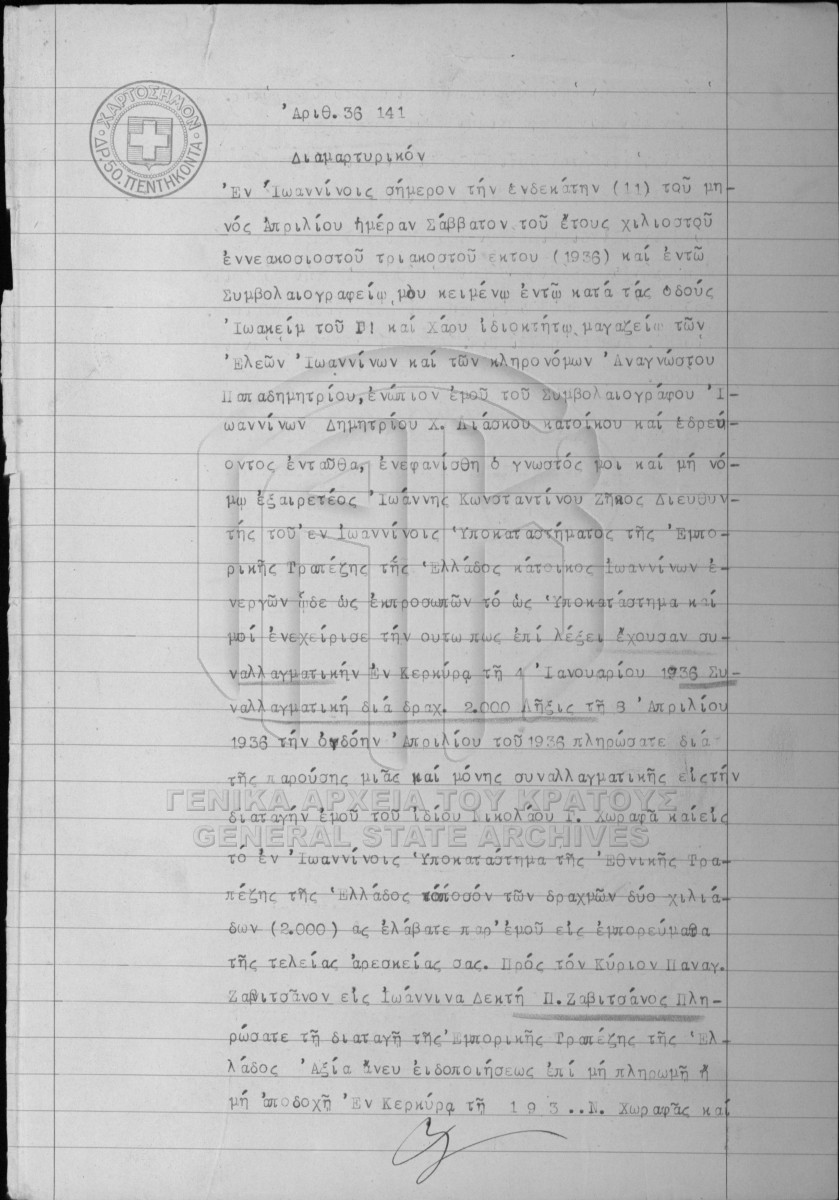 ΧΑΡΤΟΣΗΜΟΝ
ΔΡ. 50. ΠΕΝΤΗΚΟΝΤΑ
Ἀριθ. 36 141
Διαμαρτυρικόν
Ἐν Ἰωαννίνοις σήμερον τήν ἑνδεκάτην (11) τοῦ μη-
νός Ἀπριλίου ἡμέραν Σάββατον τοῦ ἔτους χιλιοστοῦ
ἐννεακοσιοστοῦ τριακοστοῦ εκτου (1936) καί ἐντῶ
Συμβολαιογραφείῳ μου κειμένῳ ἐντῶ κατά τάς ὁδούς
Ἰωακείμ τοῦ Γ! καί Χάρυ ἰδιοκτήτῳ μαγαζείῳ τῶν
Ἐλεῶν Ἰωαννίνων καί τῶν κληρονόμων Ἀναγνώστου
Παπαδημητρίου, ἐνώπιον ἐμοῦ τοῦ Συμβολαιογράφου Ἰ-
ωαννίνων Δημητρίου Χ. Λιάσκου κατοίκου καί ἑδρεύ-
οντος ἐνταῦθα, ἐνεφανίσθη ὁ γνωστός μοι καί μή νό-
μῳ ἐξαιρετέος Ἰωάννης Κωνσταντίνου Ζῆκος Διευθυν-
τής τοῦ ἐν Ἰωαννίνοις Ὑποκαταστήματος τῆς Ἐμπο-
ρικῆς Τραπέζης τῆς Ἑλλάδος κάτοικος Ἰωαννίνων ἐ-
νεργῶν ᾧδε ὡς ἐκπροσωπῶν τό ὡς Ὑποκατάστημα καί
μοί ἐνεχείρισε τήν ουτω πως ἐπί λέξει ἔχουσαν συ-
ναλλαγματικήν Ἐν Κερκύρᾳ τῇ 4 Ἰανουαρίου 1936 Συ-
ναλλαγματική διά δραχ. 2.000 Λῆξις τῇ 8 Ἀπριλίου
1936 τήν ὀγδόην Ἀπριλίου τοῦ 1936 πληρώσατε διά
τῆς παρούσης μιᾶς καί μόνης συναλλαγματικῆς εἰςτήν
διαταγήν ἐμοῦ τοῦ ἰδίου Νικολάου Γ. Χωραφᾶ καίεἰς
τό ἐν Ἰωαννίνοις Ὑποκατάστημα τῆς Ἐθνικῆς Τρα-
πέζης τῆς Ἑλλάδος τόποσόν τῶν δραχμῶν δύο χιλιά-
δων (2.000) ας ἐλάβατε παρ' ἐμοῦ εἰς ἐμπορεύματα
τῆς τελείας ἀρεσκείας σας. Πρός τόν Κύριον Παναγ.
Ζαβιτσᾶνον εἰς Ἰωάννινα Δεκτή Π. Ζαβιτσάνος Πλη-
ρώσατε τῇ διαταγῇ τῆς Ἐμπορικῆς Τραπέζης τῆς Ἑλ-
λάδος Ἀξία ἄνευ ειδοποιήσεως ἐπί μή πληρωμῇ ἤ
μή ἀποδοχῇ Ἐν Κερκύρᾳ τῇ 193.. Ν. Χωραφᾶς καί
ΓΕΝΙΚΑ ΑΡΧΕΙΑ ΤΟΥ ΚΡΑΤΟΥΣ
GENERAL STATE ARCHIVES